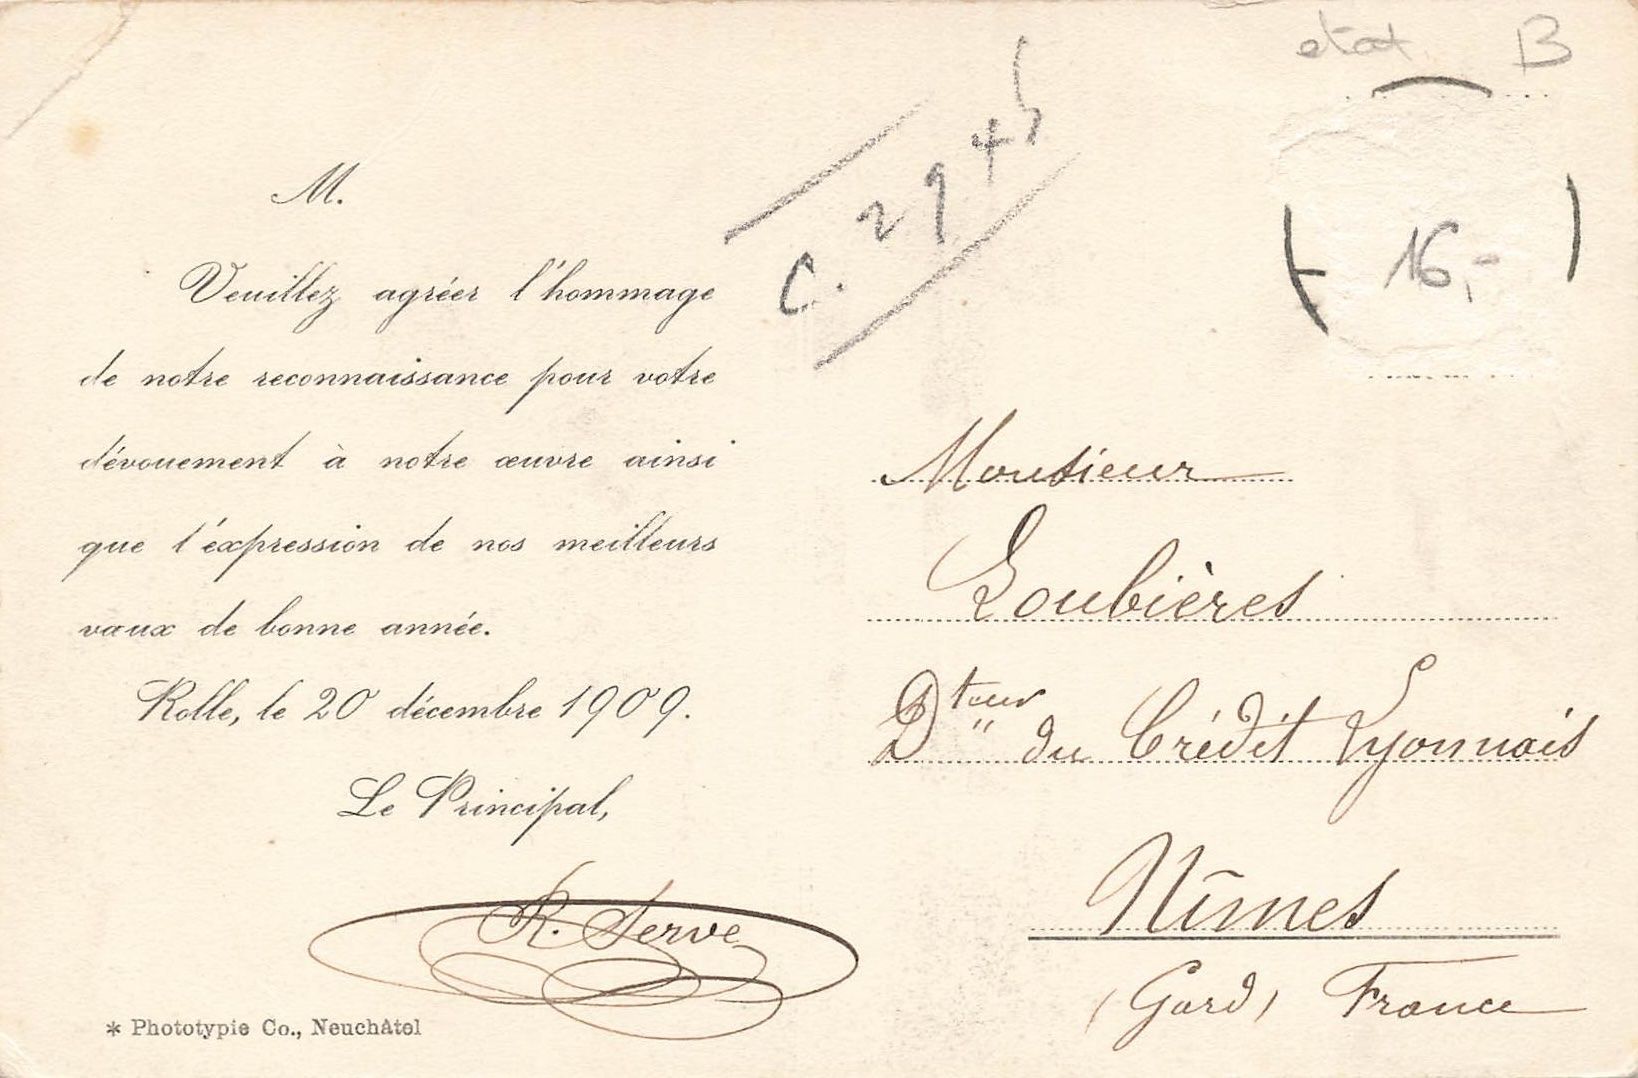 M.
Veuillez agréer l'hommage
de notre reconnaissance pour votre
dévouement à notre œuvre ainsi
que l'éxpression de nos meilleurs
vœux de bonne année.
Rolle, le 20 décembre 1909.
Le Principal,
R. Serve
* Phototypie Co., Neuchâtel
etat B
16,-
Monsieur
Loubières
Dteur du Crédit Lyonnais
Nîmes
(Gard) France